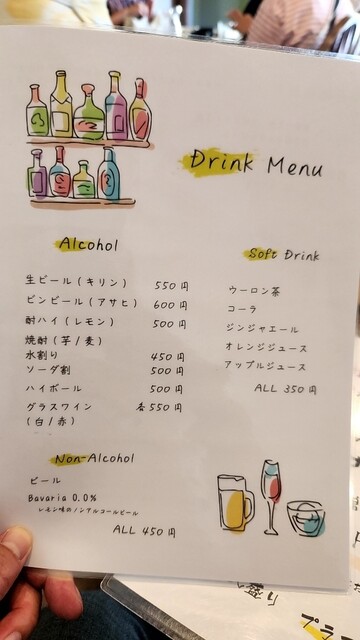 Drink Menu
Alcohol
生ビール(キリン) 550円
ビンビール(アサヒ) 600円
酎ハイ(レモン) 500円
焼酎(芋/麦)
水割り 450円
ソーダ割 500円
ハイボール 500円
グラスワイン 各550円
(白/赤)
Soft Drink
ウーロン茶
コーラ
ジンジャエール
オレンジジュース
アップルジュース
ALL 350円
Non-Alcohol
ビール
Bavaria 0.0%
レモン味のノンアルコールビール
ALL 450円